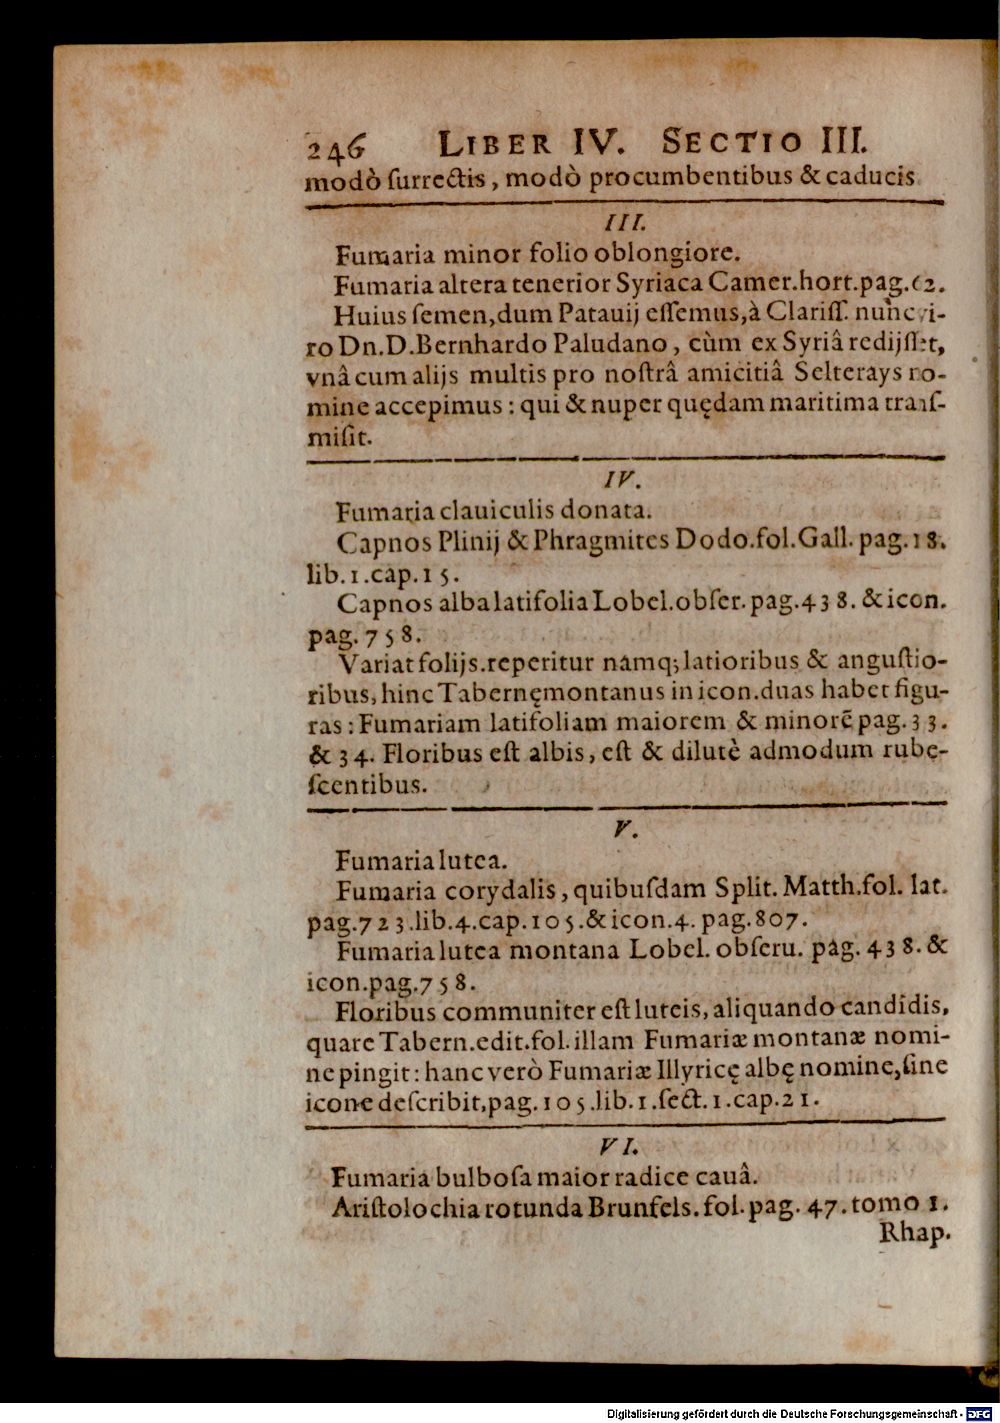 246 LIBER IV. SECTIO III.
modò ſurrectis, modò procumbentibus & caducis
III.
Fumaria minor folio oblongiore.
Fumaria altera tenerior Syriaca Camer.hort.pag.62.
Huius ſemen,dum Patauij eſſemus,à Clariſſ. nunc vi-
ro Dn.D.Bernhardo Paludano, cùm ex Syriâ redijſſet,
vnâ cum alijs multis pro noſtrâ amicitiâ Selterays no-
mine accepimus : qui & nuper quędam maritima tranſ-
miſit.
IV.
Fumaria clauiculis donata.
Capnos Plinij & Phragmites Dodo.fol.Gall. pag.18.
lib.1.cap.15.
Capnos alba latifolia Lobel.obſer.pag.438. & icon.
pag.758.
Variat folijs.reperitur namq; latioribus & anguſtio-
ribus, hinc Tabernęmontanus in icon.duas habet figu-
ras : Fumariam latifoliam maiorem & minorẽ pag.33.
& 34. Floribus eſt albis, eſt & dilutè admodum rube-
ſcentibus.
V.
Fumaria lutea.
Fumaria corydalis, quibuſdam Split. Matth.fol. lat.
pag.723.lib.4.cap.105.& icon.4. pag.807.
Fumaria lutea montana Lobel. obſeru. pag. 438. &
icon.pag.758.
Floribus communiter eſt luteis, aliquando candidis,
quare Tabern.edit.fol.illam Fumariæ montanæ nomi-
ne pingit : hanc verò Fumariæ Illyricę albę nomine,ſine
icone deſcribit,pag.105.lib.1.ſect.1.cap.21.
VI.
Fumaria bulboſa maior radice cauâ.
Ariſtolochia rotunda Brunfels.fol.pag.47.tomo 1.
Rhap.
Digitalisierung gefördert durch die Deutsche Forschungsgemeinschaft - DFG